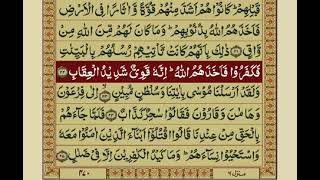 قَبْلِهِمْ ؕ كَانُوْا هُمْ اَشَدَّ مِنْهُمْ قُوَّةً وَّاٰثَارًا فِى الْاَرْضِ
فَاَخَذَهُمُ اللّٰهُ بِذُنُوْبِهِمْ ؕ وَمَا كَانَ لَهُمْ مِّنَ اللّٰهِ مِنْ
وَّاقٍ ﴿۲۱﴾ ذٰلِكَ بِاَنَّهُمْ كَانَتْ تَّاْتِيْهِمْ رُسُلُهُمْ بِالْبَيِّنٰتِ
فَكَفَرُوْا فَاَخَذَهُمُ اللّٰهُ ؕ اِنَّهٗ قَوِىٌّ شَدِيْدُ الْعِقَابِ ﴿۲۲﴾
وَلَقَدْ اَرْسَلْنَا مُوْسٰى بِاٰيٰتِنَا وَسُلْطٰنٍ مُّبِيْنٍ ﴿۲۳﴾ اِلٰى فِرْعَوْنَ
وَهَامٰنَ وَقَارُوْنَ فَقَالُوْا سٰحِرٌ كَذَّابٌ ﴿۲۴﴾ فَلَمَّا جَآءَهُمْ
بِالْحَقِّ مِنْ عِنْدِنَا قَالُوا اقْتُلُوْۤا اَبْنَآءَ الَّذِيْنَ اٰمَنُوْا مَعَهٗ
وَاسْتَحْيُوْا نِسَآءَهُمْ ؕ وَمَا كَيْدُ الْكٰفِرِيْنَ اِلَّا فِىْ ضَلٰلٍ ﴿۲۵﴾
منزل ۶
۴۷۰